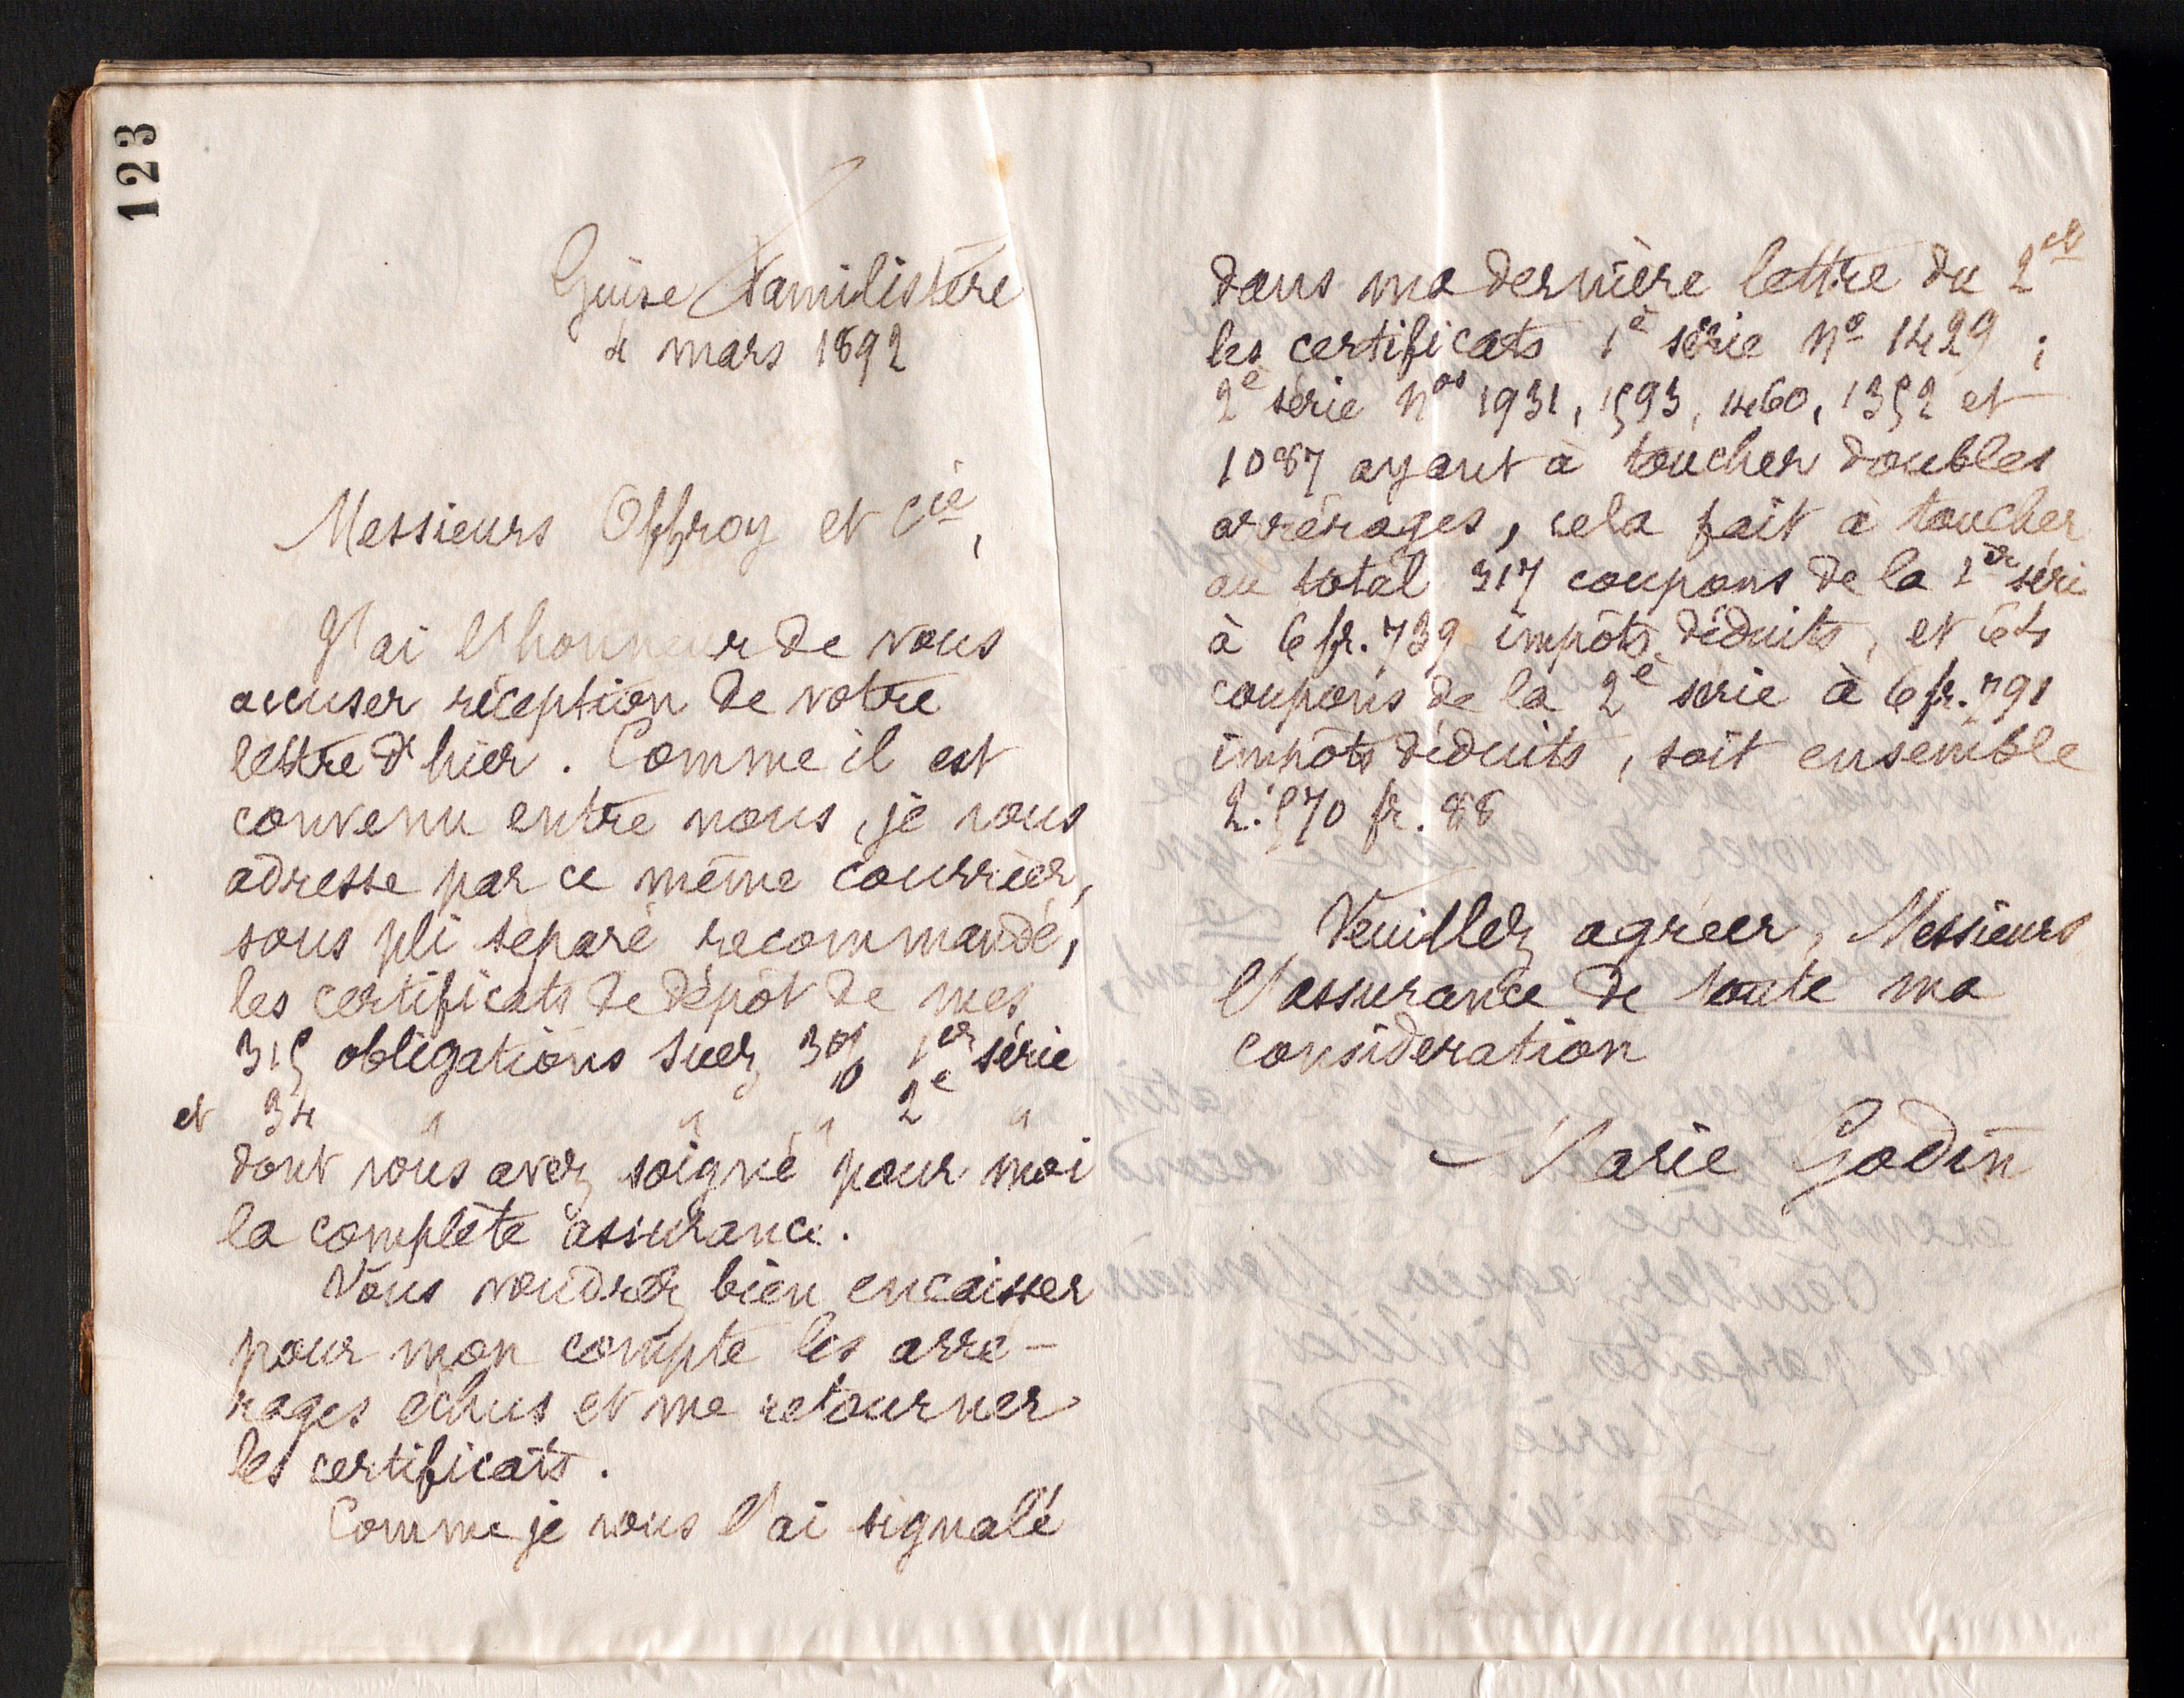 123
Guise Familistère
4 mars 1892
Messieurs Offroy et Cie,
J'ai l'honneur de vous
accuser réception de votre
lettre d'hier. Comme il est
convenu entre nous, je vous
adresse par ce même courrier,
sous pli séparé recommandé,
les certificats de dépôt de mes
315 obligations Suez 3% 1er série
et 34 " " " 2e "
dont vous avez soigné pour moi
la complète assurance.
Vous voudrez bien encaisser
pour mon compte les arré-
rages échus et me retourner
les certificats.
Comme je vous l'ai signalé
dans ma dernière lettre du 2 ct
les certificats 1e série No 1429 ;
2e série Nos 1931, 1593, 1460, 1352 et
1087 ayant à toucher doubles
arrérages, cela fait à toucher
au total 317 coupons de la 1ère séri
à 6 fr. 739 impôts déduits, et 64
coupons de la 2e série à 6 fr. 791
impôts déduits, soit ensemble
2.570 fr. 88
Veuillez agréer, Messieurs
l'assurance de toute ma
considération
Marie Godin